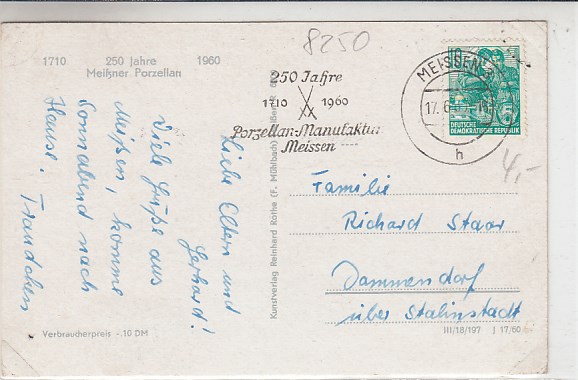 8250
1710 250 Jahre 1960
Meißner Porzellan
250 Jahre
1710 1960
Porzellan-Manufaktur
Meissen
MEISSEN
17.6.
h
10
5
DEUTSCHE
DEMOKRATISCHE REPUBLIK
4,-
Liebe Eltern und
Gerhard!
Viele Grüße aus
Meißen, komme
Sonnabend nach
Hause. Traudchen
Familie
Richard Staar
Dammendorf
über Stalinstadt
Kunstverlag Reinhard Rothe (F. Mühlbach) Meißen
Verbraucherpreis -.10 DM
III/18/197 J 17/60